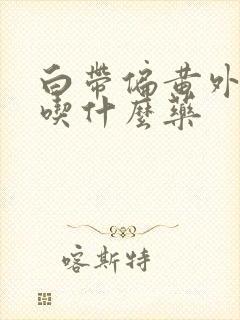 白帶偏黄外
喫什麽藥
喀斯特